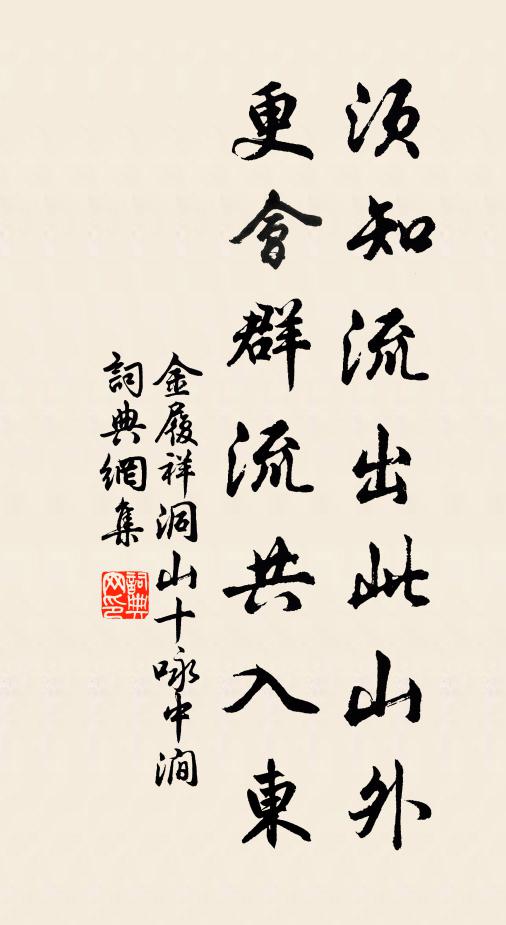 須知流出此山外
更會群流共入東
金履祥洞山十咏中澗
詞典網集
詞典网印